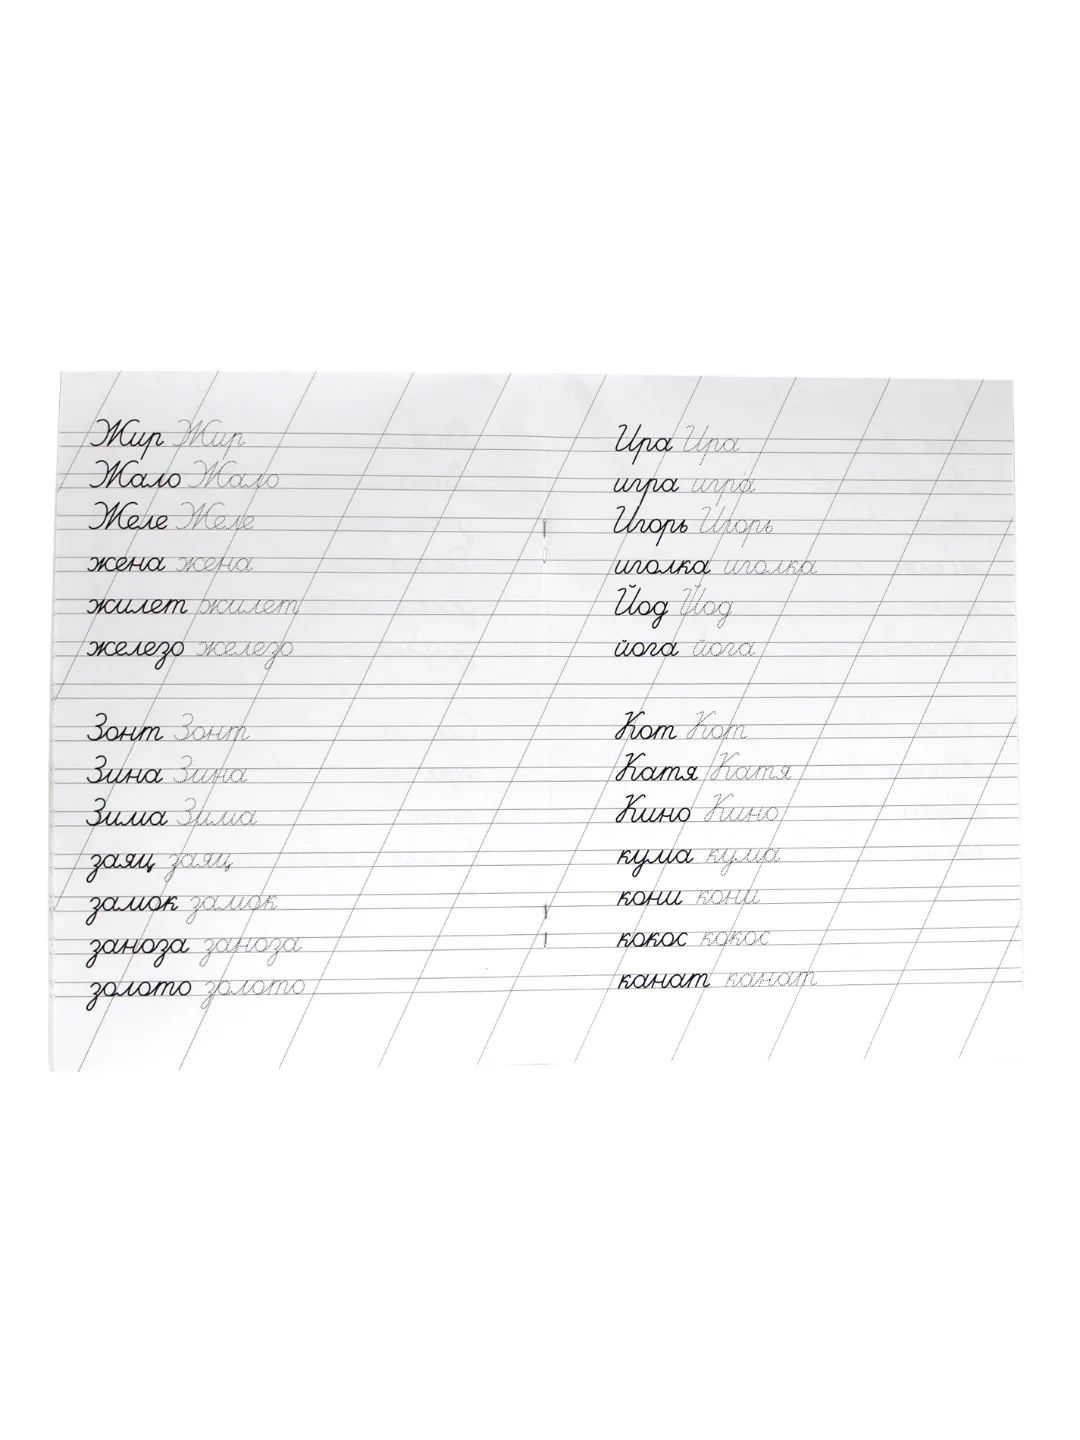 Жир Жир
Жало Жало
Желе Желе
жена жена
жилет жилет
железо железо
Зонт Зонт
Зина Зина
Зима Зима
заяц заяц
замок замок
заноза заноза
золото золото
Ира Ира
игра игра
Игорь Игорь
иголка иголка
Йод Йод
йога йога
Кот Кот
Катя Катя
Кино Кино
кума кума
кони кони
кокос кокос
канат канат